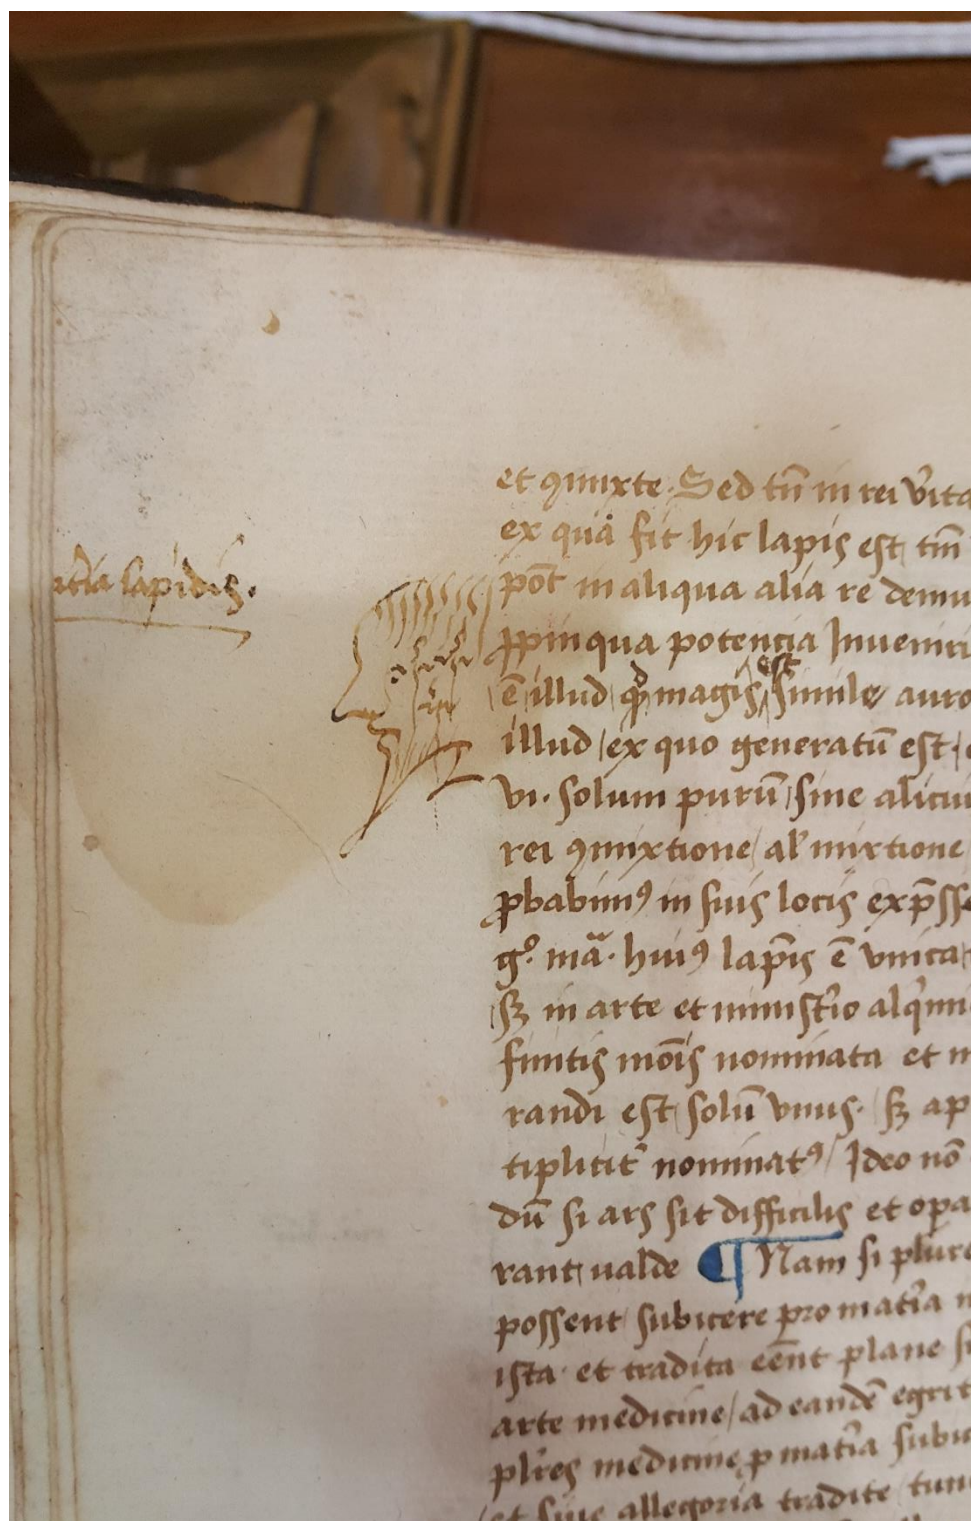 et ꝯmixte. Sed tn̄ in rei v̓ita
ex qua fit hic lapis est tm̄
lapidis.
pōt in aliqua alia re demu
ꝓpinqua potencia Inveniri
est
ē illud qd magis simile auro
illud ex quo generatū est
vi. solum purū sine alicui
rei ꝯmixtione al̓ mixtione
ꝓbabimꝰ in suis locis exp̄sse
gͦ. mā. huiꝰ lap̄is ē vnica
sꝫ in arte et minist̓io alq̓mi
funtis mōis nominata et m
randi est solū vnus. sꝫ ap
tiplicit̓ nominatꝰ Ideo nō
dū si ars sit difficilis et opa
rant valde ¶ Nam si plure
possent subicere pro mat̓ia n
ista et tradita eēnt plane si
arte medicine ad eandē egrit
pl̓res medicine ꝓ mat̓ia subic
et sine allegoria tradite tunc